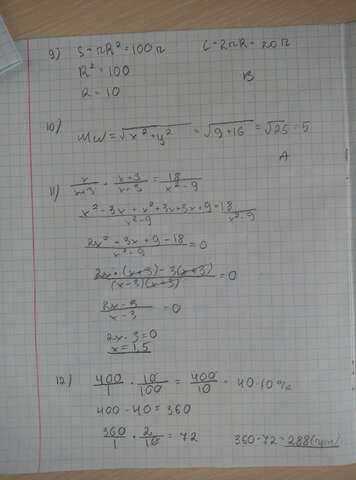 9) S = πR² = 100π C = 2πR = 20π
R² = 100
R = 10
B
10) |MN| = √x² + y² = √9 + 16 = √25 = 5
A
11) x/x+3 + x+3/x-3 = 18/x²-9
x² - 3x + x² + 3x + 3x + 9 - 18/x²-9
2x² - 3x + 9 - 18/x²-9 = 0
2x · (x+3) - 3(x+3)/(x-3)(x+3) = 0
2x - 3/x - 3 = 0
2x - 3 = 0
x = 1,5
12) 400/1 · 10/100 = 400/10 = 40 - 10%
400 - 40 = 360
360/1 · 2/10 = 72 360 - 72 = 288 (грн)